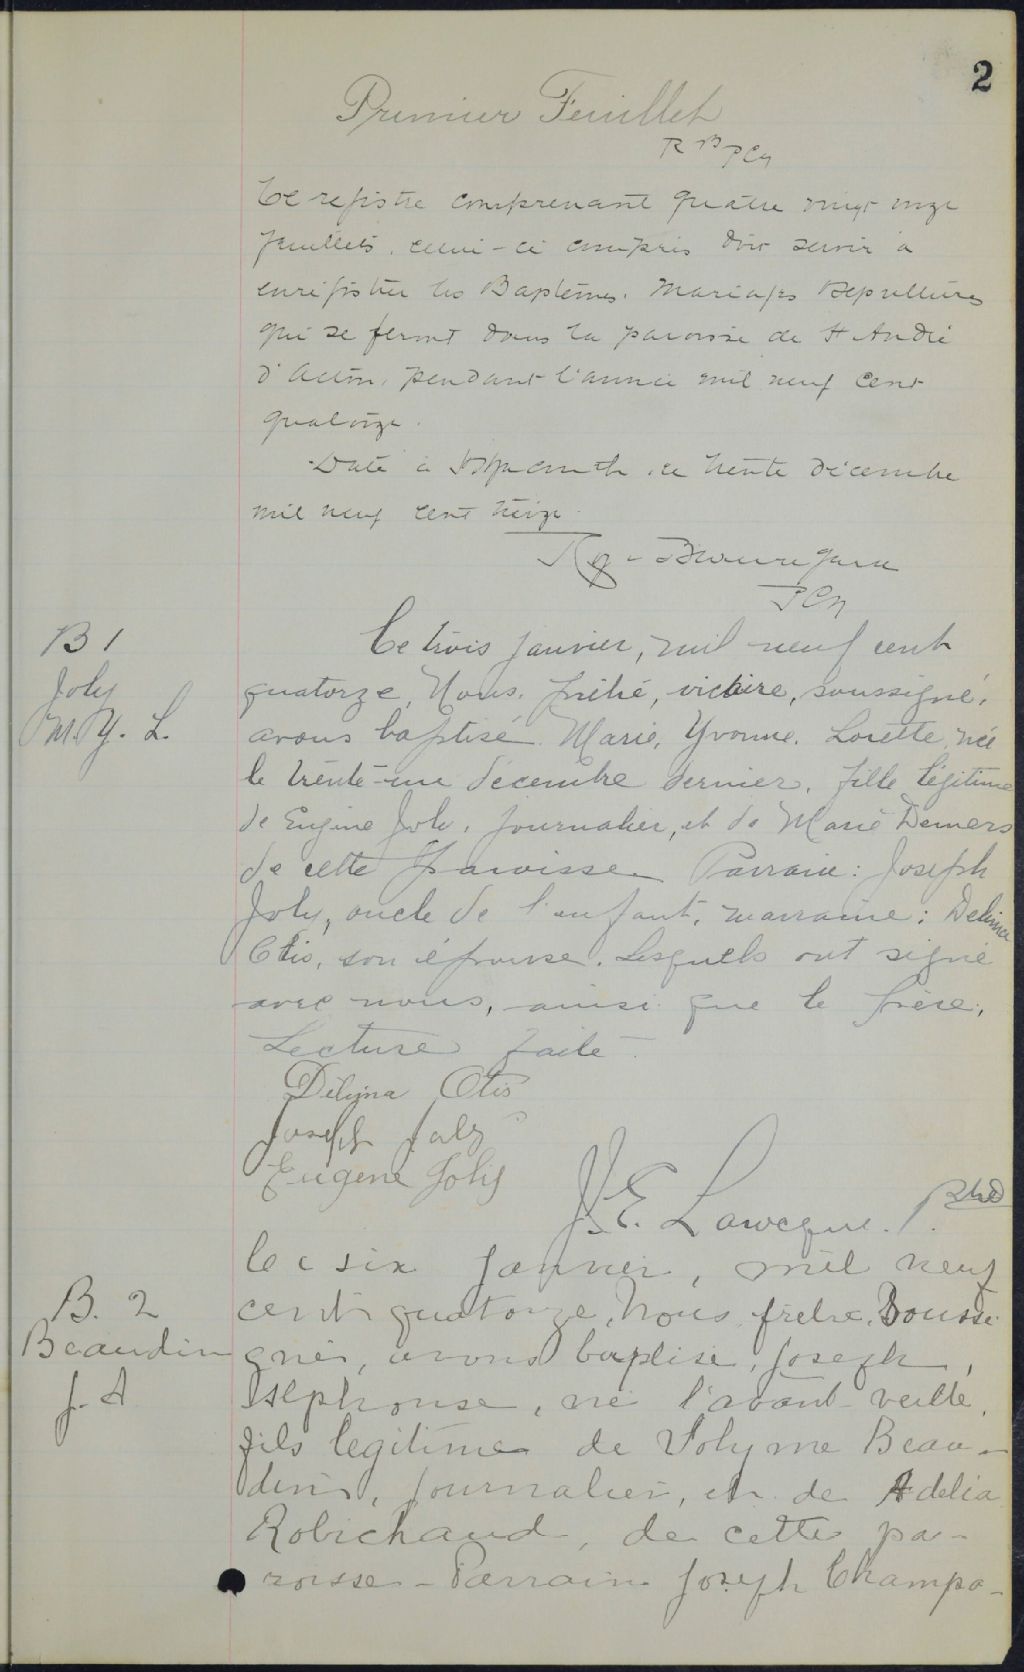 2
Premier Feuillet
R B PCS
Ce registre comprenant quatre vingt onze
feuillets, celui-ci compris doit servir a
enregistrer les Baptêmes. Mariages Sepultures
qui se feront dans la paroisse de St André
d'Acton, pendant l'année mil neuf cent
quatorze.
Daté à St Hyacinthe ce trente décembre
mil neuf cent treize.
Beauregard
PCS
B 1
Joly
M. Y. L.
Ce trois janvier, mil neuf cent
quatorze, Nous, prêtre, vicaire, soussigné,
avons baptisé Marie, Yvonne, Lorette, née
le trente-un décembre dernier, fille légitime
de Eugène Joly, journalier, et de Marie Demers
de cette paroisse Parrain: Joseph
Joly, oncle de l'enfant, marraine: Delima
Otis, son épouse. Lesquels ont signé
avec nous, ainsi que le père.
Lecture faite.
Délyma Otis
Joseph Joly
Eugene Joly
J. E. Lavecque. Ptre
B. 2
Beaudin
J. A
le six janvier, mil neuf
cent quatorze, Nous prêtre, Soussi
gné, avons baptisé, Joseph,
Alphonse, né l'avant-veille,
fils legitime de Solyme Beau-
din, journalier, et de Adelia
Robichaud, de cette pa-
roisse - Parrain Joseph Champa-